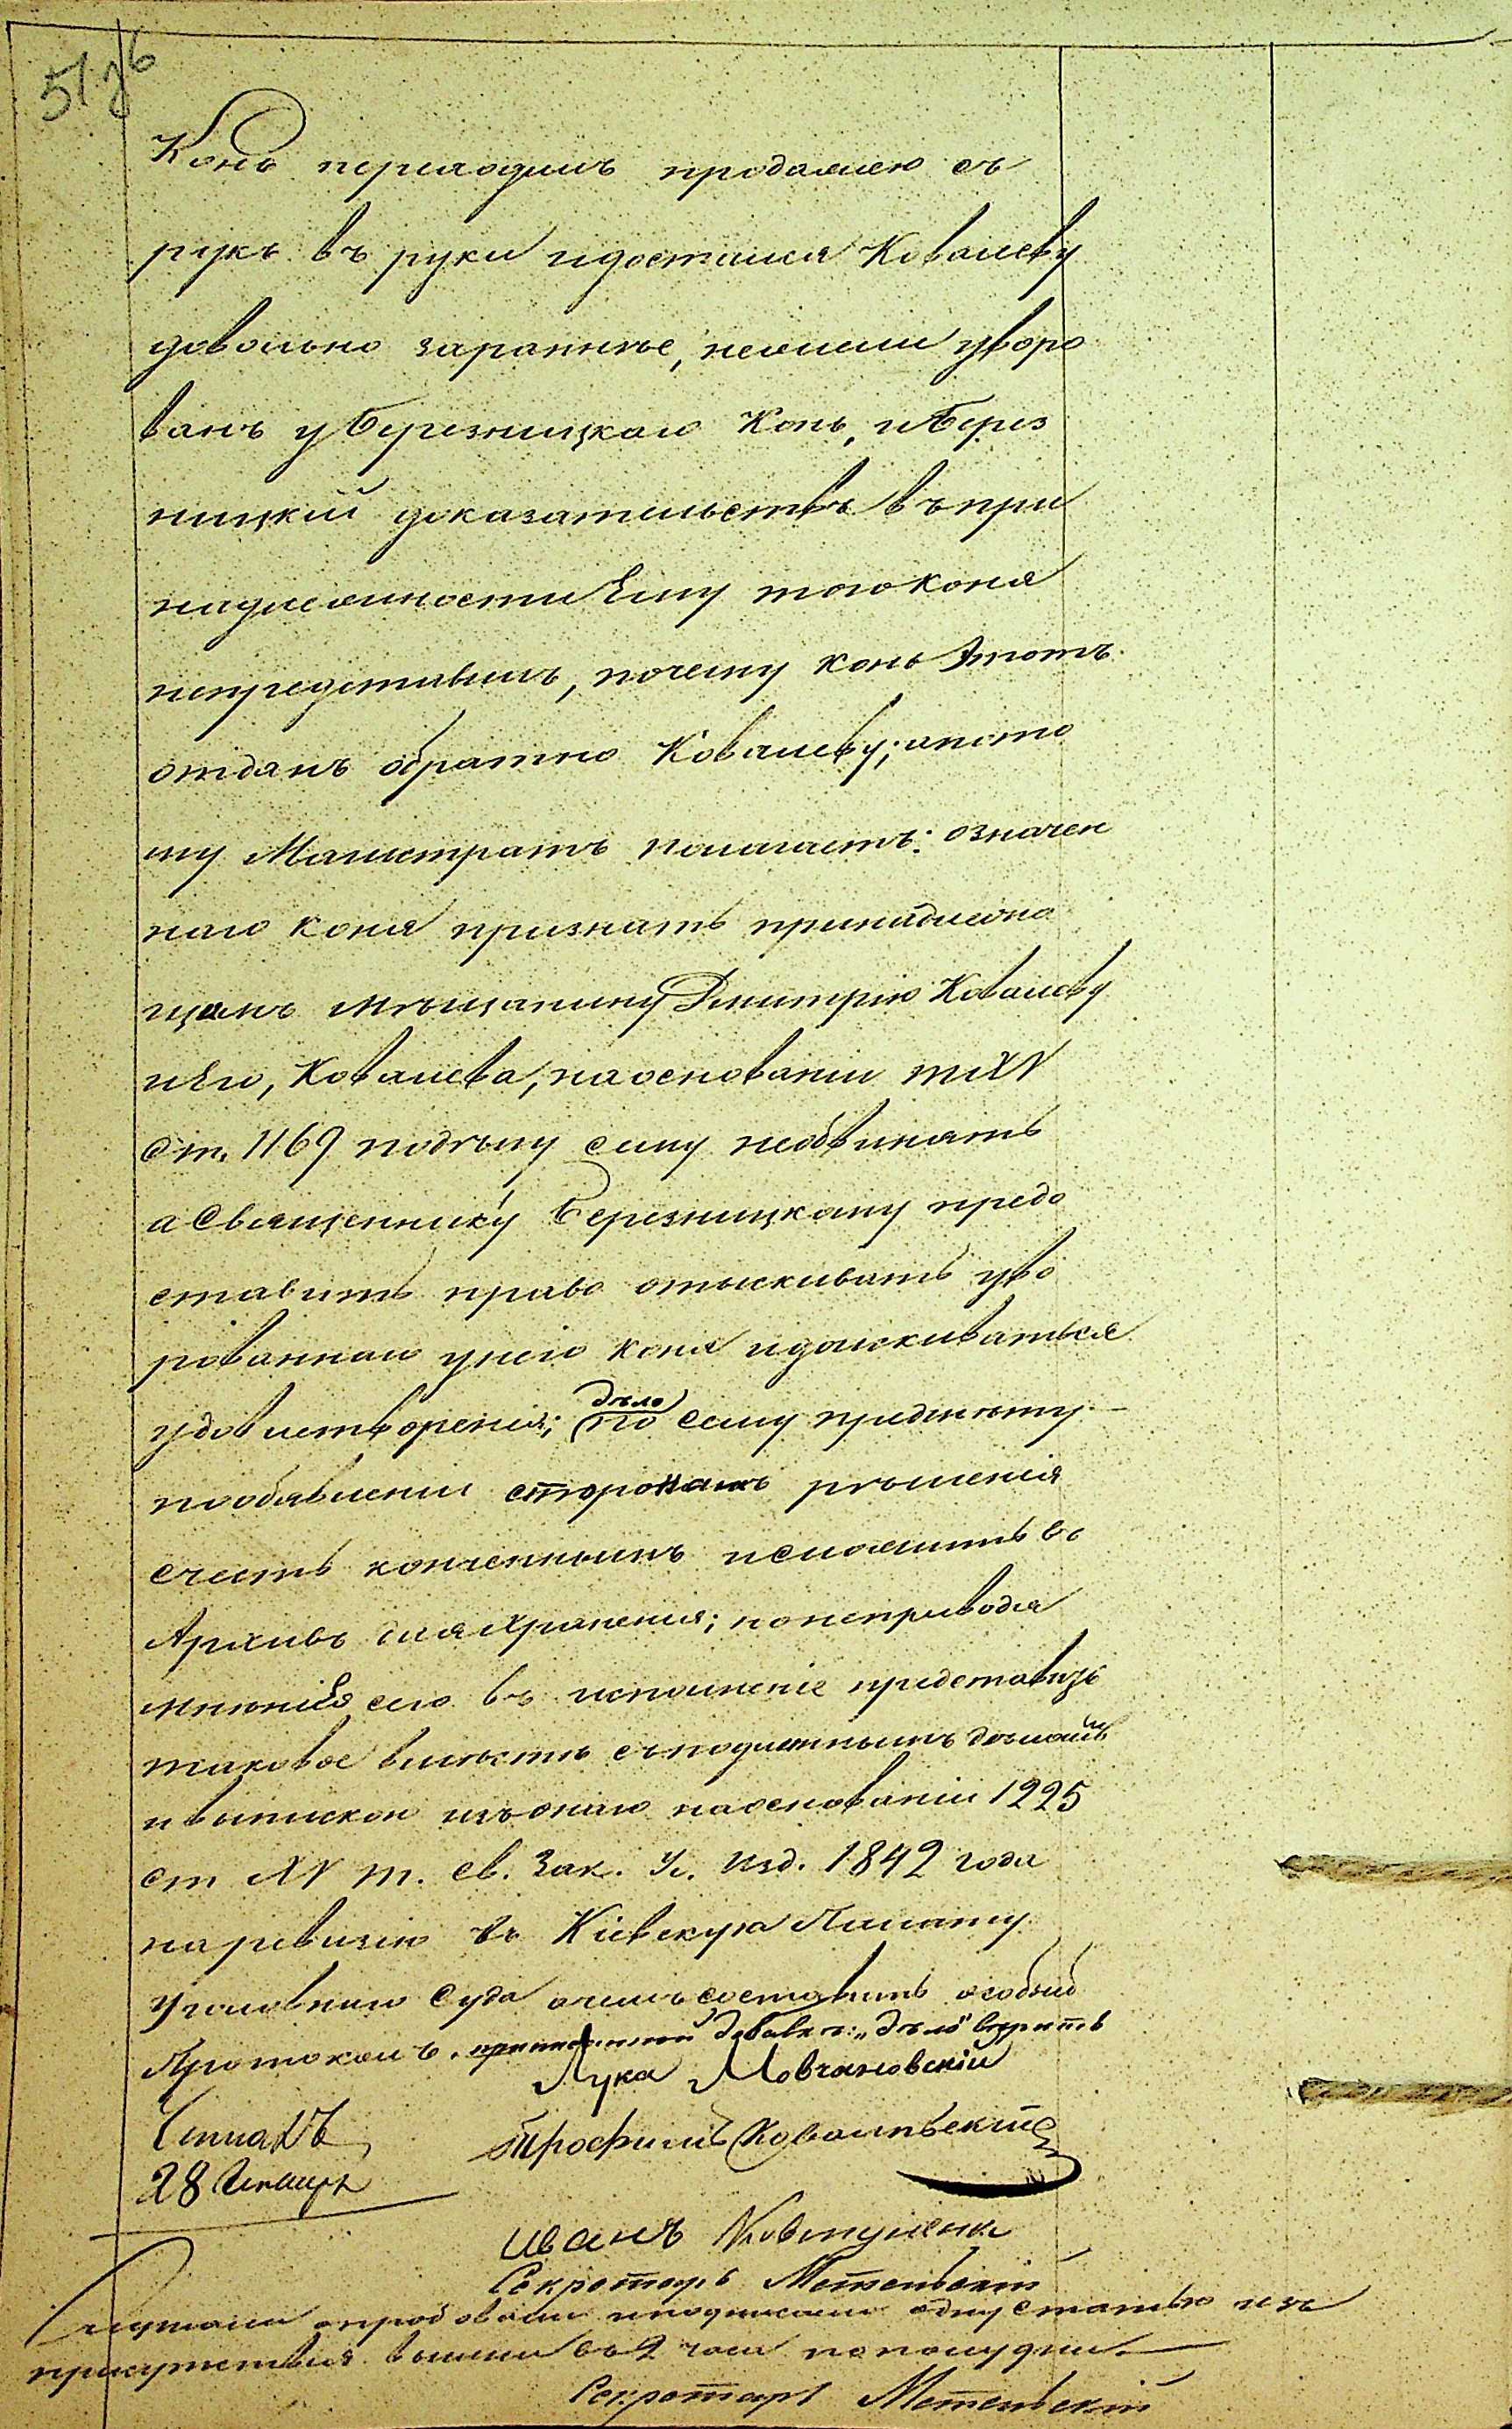 51 зв
Конь переходилъ продажею съ
рукъ въ руки и достался Ковалеву
довольно заранѣе, нежели уворо
ванъ у Березницкаго Конь, и Берез
ницкій доказательствъ въ при
надлежности Ему того коня
непредставилъ, почему конь этотъ
отданъ обратно Ковалеву; а пото
му Магистратъ полагаетъ: означен
наго коня признать принадлежа
щимъ мѣщанину Дмитрію Ковалеву
и Его, Ковалева, на основаніи т. XV
ст. 1169 по дѣлу сему необвинять
а Священнику Березницкому предо
ставить право отыскивать уво
рованнаго у него коня и доискиваться
удовлетворенія; дѣло по сему предмѣту
по обявленіи сторонамъ рѣшенія
счесть конченнымъ и сложить въ
Архивъ для храненія; но неприводя
мнѣнія сего въ исполненіе представить
таковое вмѣстѣ съ подлиннымъ дѣломъ
и выпиской изъ онаго на основаніи 1225
ст XV т. Св. Зак. Уг. Изд. 1842 года
на ревизію въ Кіевскую Палату
Уголовнаго Суда о чемъ составить особый
Протоколъ. добавкѣ: „дѣло" вѣрить
Лука Мовчановскій
Трофимъ Ковальскій
28 Января
Иванъ
Секретарь Метельскій
Слушали опробовали и подписали одну статью изъ
присутствія вышли въ 2 часа по полудни
Секретарь Метельскій